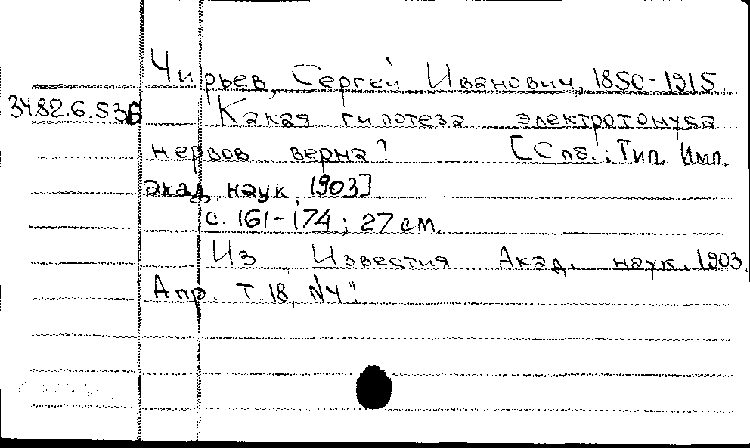 Чирьев, Сергей Иванович, 1850-1915
34.82.6.536 Какая гипотеза электротонуса
нервов верна? [Спб.: Тип. Имп.
акад. наук, 1903]
с. 161-174; 27 см.
Из Известия Акад. наук. 1903.
Апр. Т 18, №4"